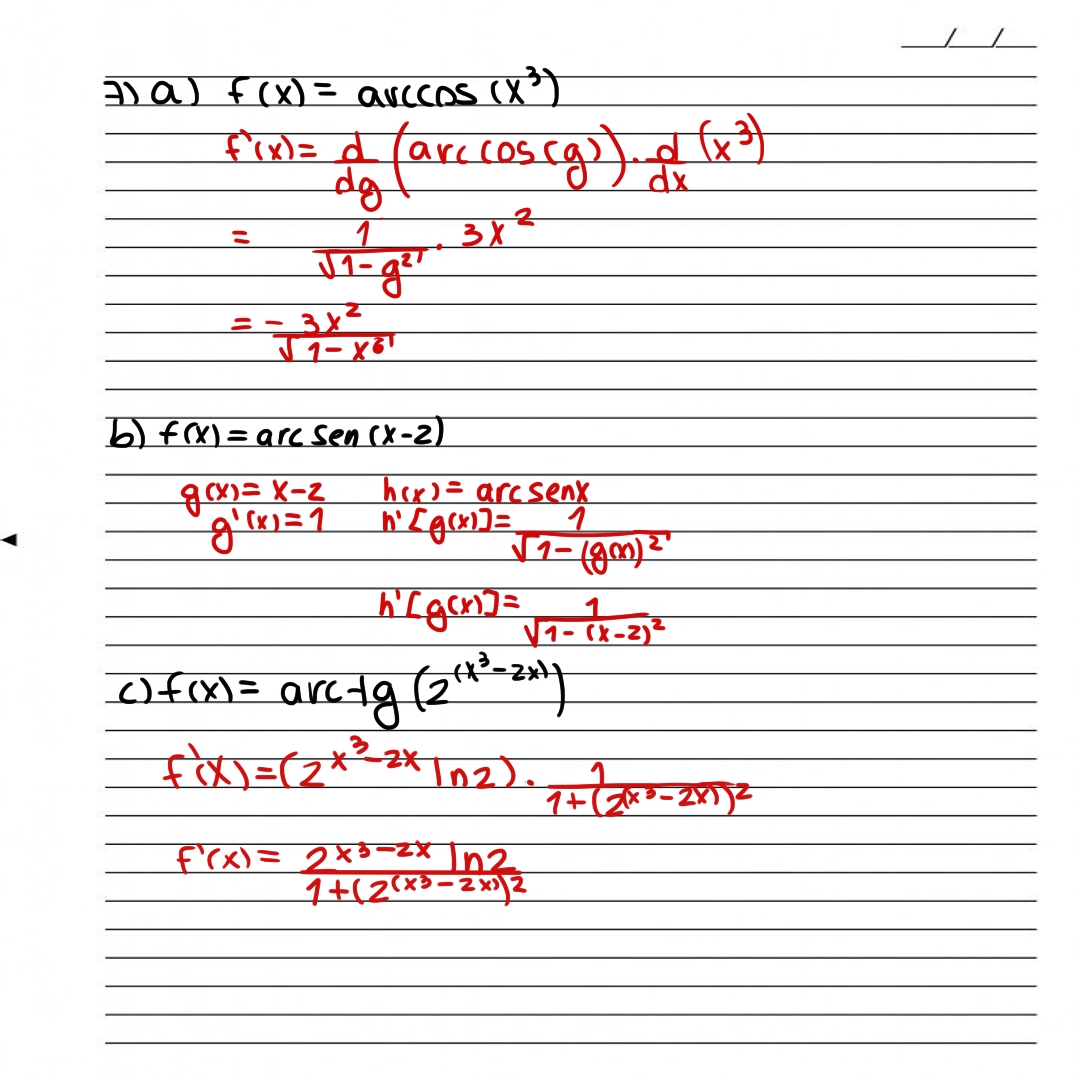 7) a) f(x) = arccos (x³)
f'(x) = d/dg (arccos(g)) · d/dx (x³)
= 1/√(1 - g²) · 3x²
= - 3x²/√(1 - x⁶)
b) f(x) = arc sen (x-2)
g(x) = x-2 h(x) = arc senx
g'(x) = 1 h'[g(x)] = 1/√(1-(g(x))²)
h'[g(x)] = 1/√(1-(x-2)²)
c) f(x) = arc tg (2^(x³-2x))
f'(x) = (2^x³-2x ln2) · 1/1+(2^(x³-2x))²
f'(x) = 2^x³-2x ln2/1+(2^(x³-2x))²